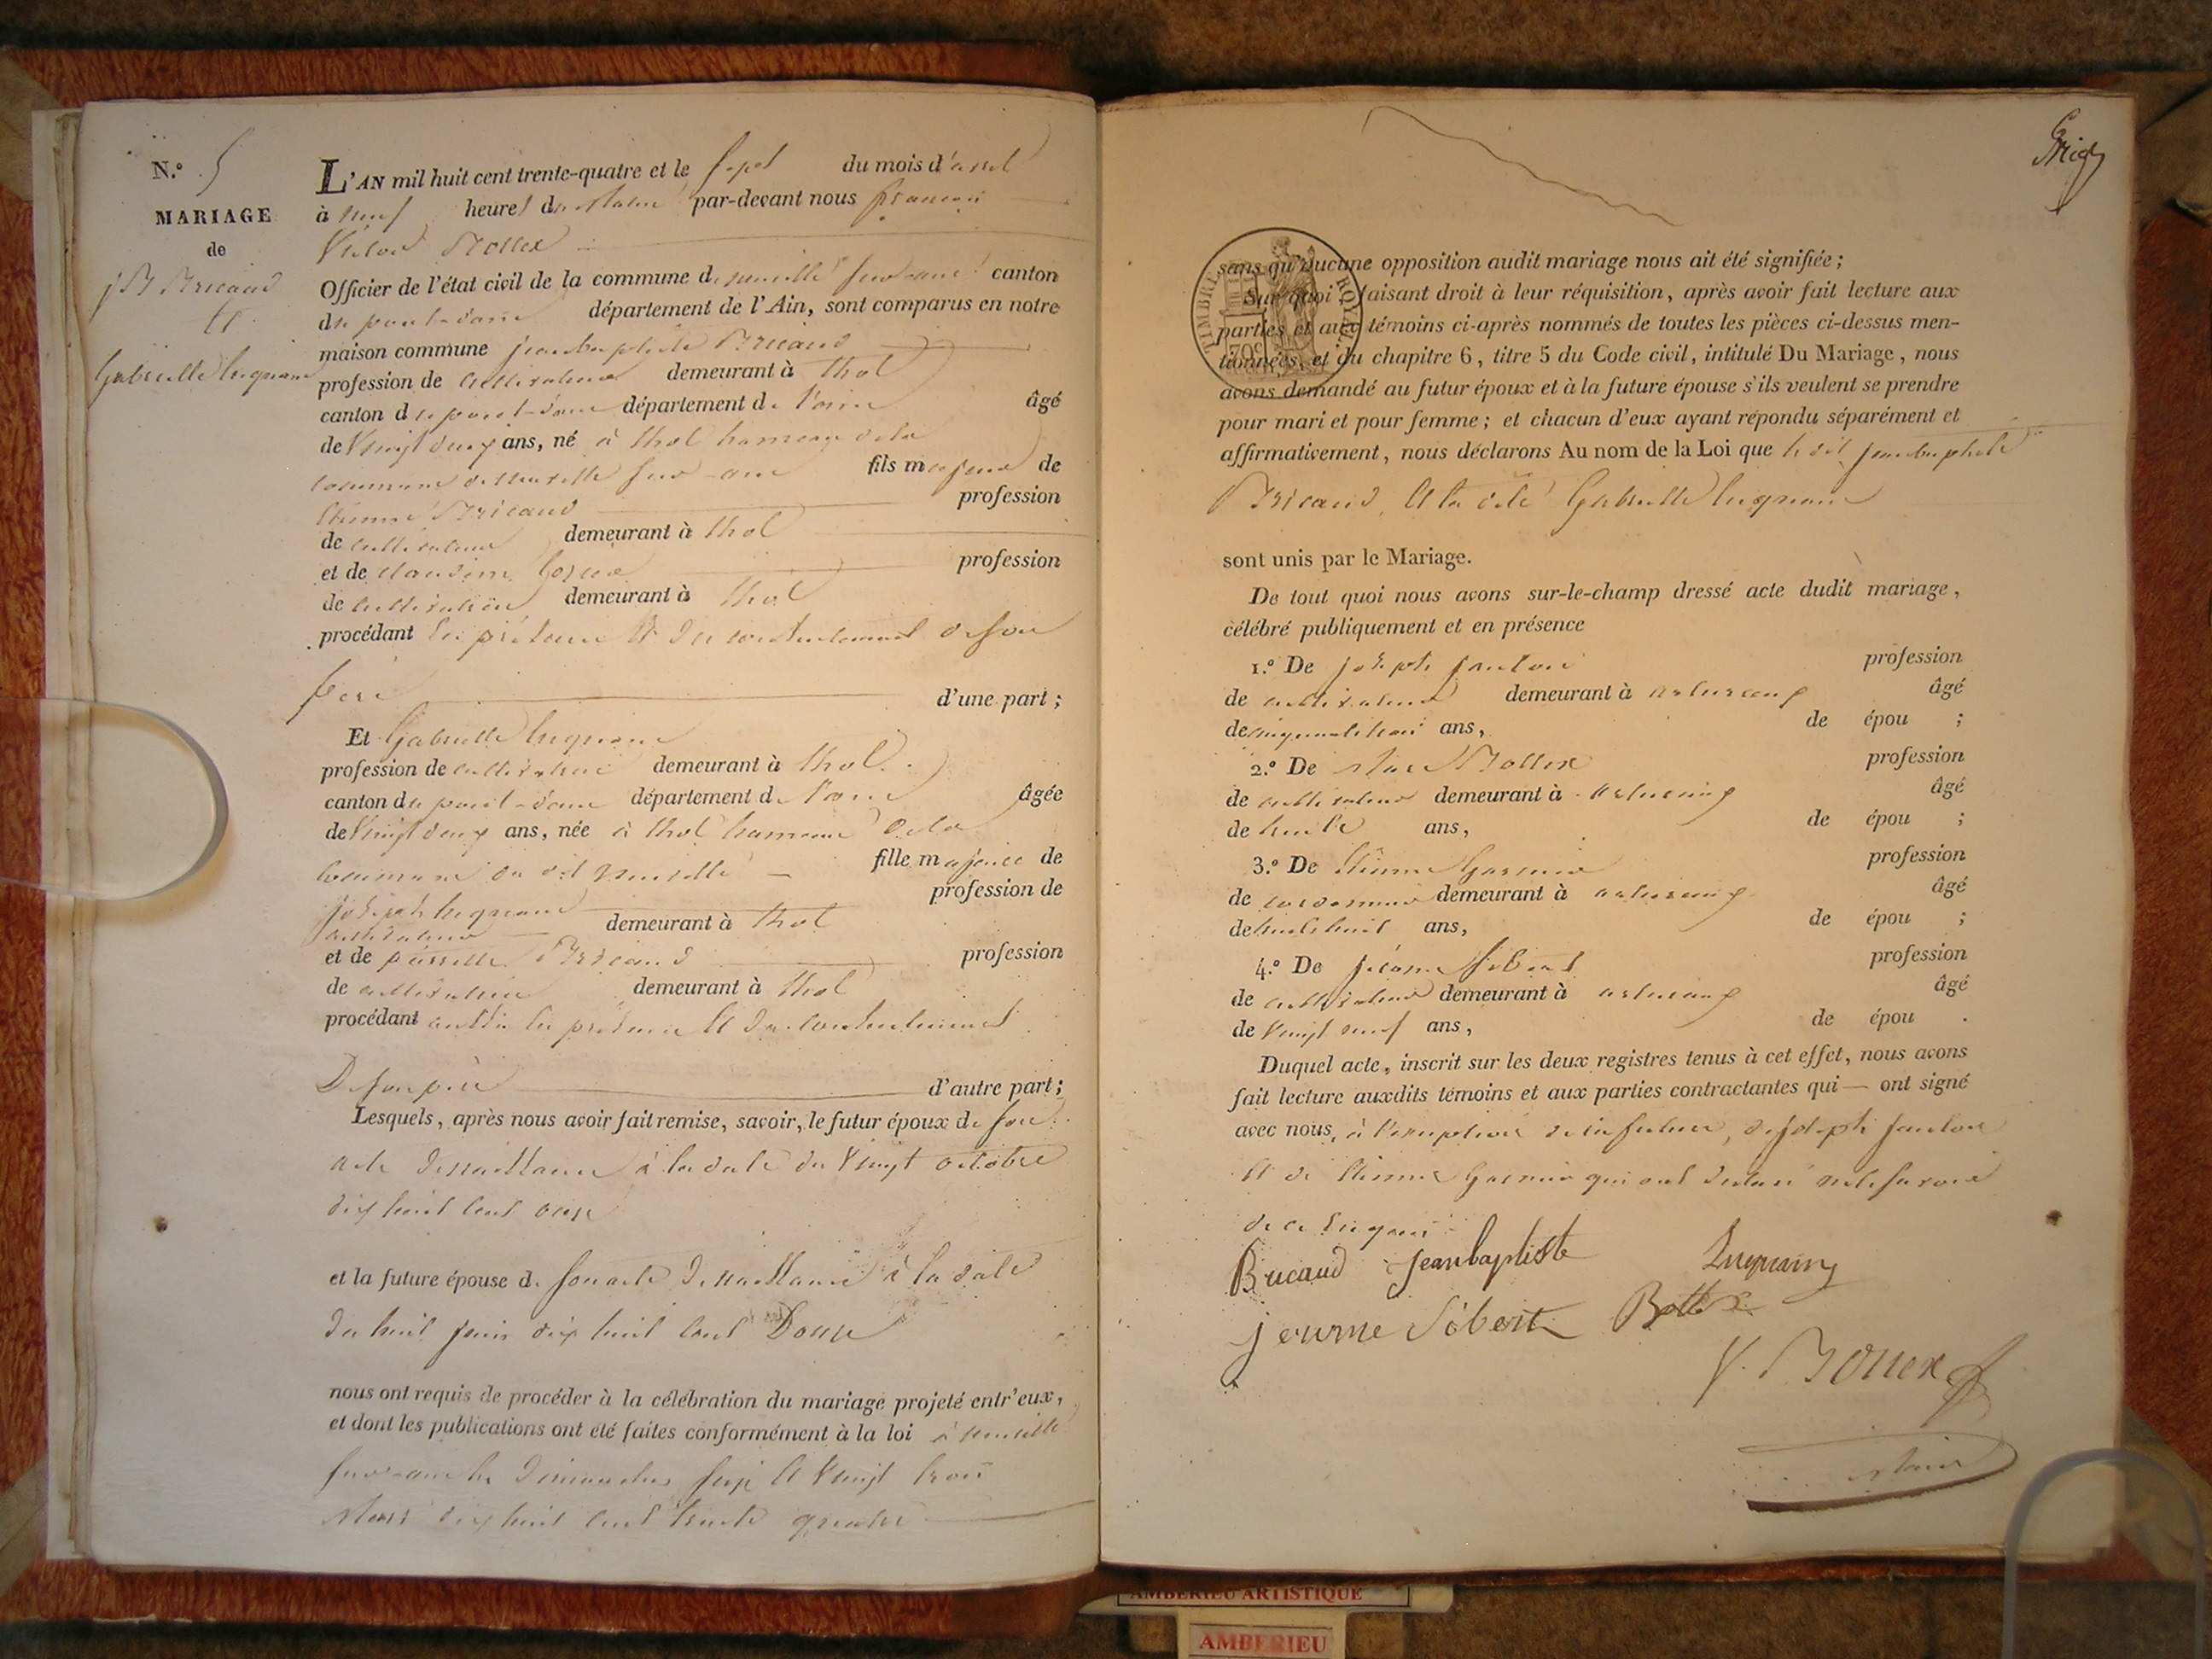 N.º 5
MARIAGE
de
j B Bricaud
et
Gabrielle luquain
L'AN mil huit cent trente-quatre et le sept du mois d'avril
à neuf heures du matin par-devant nous françois
Victor Bottex
Officier de l'état civil de la commune de neuville sur-ain canton
du pont-d'ain département de l'Ain, sont comparus en notre
maison commune jean baptiste Bricaud
profession de cultivateur demeurant à thol
canton du pont-d'ain département de l'ain âgé
de Vingt deux ans, né à thol hameau de la
commune de neuville sur-ain fils majeur de
Etienne Bricaud profession
de cultivateur demeurant à thol
et de claudine profession
de cultivatrice demeurant à thol
procédant en présence et du consentement de son
père d'une part ;
Et Gabrielle luquain
profession de cultivatrice demeurant à thol
canton du pont-d'ain département de l'ain âgée
de Vingt deux ans, née à thol hameau de la
commune du dit neuville fille majeure de
joseph luquain profession de
cultivateur demeurant à thol
et de pierrette Bricaud profession
de cultivatrice demeurant à thol
procédant aussi en présence et du consentement
De son père d'autre part ;
Lesquels, après nous avoir fait remise, savoir, le futur époux de son
acte de naissance à la date du Vingt octobre
dix huit cent onze
et la future épouse de son acte de naissance à la date
du huit juin dix huit cent Douze
nous ont requis de procéder à la célébration du mariage projeté entr'eux,
et dont les publications ont été faites conformément à la loi à neuville
sur-ain les dimanches seize et Vingt trois
Mars dix huit cent trente quatre
sans qu'aucune opposition audit mariage nous ait été signifiée ;
TIMBRE ROYAL
70c
Sur quoi faisant droit à leur réquisition, après avoir fait lecture aux
parties et aux témoins ci-après nommés de toutes les pièces ci-dessus men-
tionnées, et du chapitre 6, titre 5 du Code civil, intitulé Du Mariage, nous
avons demandé au futur époux et à la future épouse s'ils veulent se prendre
pour mari et pour femme ; et chacun d'eux ayant répondu séparément et
affirmativement, nous déclarons Au nom de la Loi que le dit jean baptiste
Bricaud, et la dite Gabrielle luquain
sont unis par le Mariage.
De tout quoi nous avons sur-le-champ dressé acte dudit mariage,
célébré publiquement et en présence
1.º De joseph janton profession
de cultivateur demeurant à âgé
de cinquante trois ans, de épou ;
2.º De Marc Bottex profession
de cultivateur demeurant à âgé
de trente ans, de épou ;
3.º De Etienne Garnier profession
de cordonnier demeurant à âgé
de trente huit ans, de épou ;
4.º De jérome Sibert profession
de cultivateur demeurant à âgé
de Vingt neuf ans, de épou .
Duquel acte, inscrit sur les deux registres tenus à cet effet, nous avons
fait lecture auxdits témoins et aux parties contractantes qui — ont signé
avec nous, à l'exception de la future, de joseph janton
et de Etienne Garnier qui ont déclaré ne le savoir
de ce requis
Bricaud jeanbaptiste Luquain
jerome Sibert Bottex
V. Bottex
Maire
AMBERIEU ARTISTIQUE
AMBERIEU